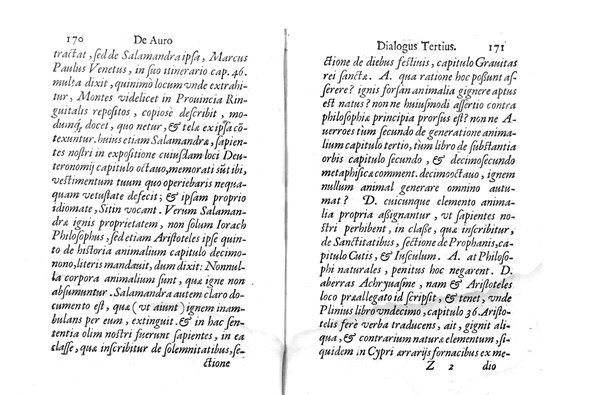 170 De Auro
tractat, sed de Salamandra ipsa, Marcus
Paulus Venetus, in suo itinerario cap. 46.
multa dixit, quinimò locum vnde extrahi-
tur, Montes videlicet in Prouincia Rin-
guitalis repositos, copiosè describit, mo-
dumq; docet, quo netur, & tela ex ipsa cō-
texuntur. huius etiam Salamandræ, sapien-
tes nostri in expositione cuiusdam loci Deu-
teronomij capitulo octauo, memorati sūt ibi,
vestimentum tuum quo operiebaris nequa-
quam vetustate defecit; & ipsam proprio
idiomate, Sitin vocant. Verum Salaman-
dræ ignis proprietatem, non solum Iorach
Philosophus, sed etiam Aristoteles ipse quin-
to de historia animalium capitulo decimo-
nono, literis mandauit, dum dixit: Nonnul-
la corpora animalium sunt, quæ igne non
absumuntur. Salamandra autem claro do-
cumento est, quæ (vt aiunt) ignem inam-
bulans per eum, extinguit. & in hac sen-
tentia olim nostri fuerunt sapientes, in ea
classe, quæ inscribitur de solemnitatibus, se-
ctione
Dialogus Tertius. 171
ctione de diebus festiuis, capitulo Grauitas
rei sanctæ. A. qua ratione hoc possunt as-
serere? ignis forsan animalia gignere aptus
est natus? non ne huiusmodi assertio contra
philosophiæ principia prorsus est? non ne A-
uerroes tium secundo de generatione anima-
lium capitulo tertio, tium libro de substantia
orbis capitulo secundo, & decimosecundo
metaphisicæ comment. decimooctauo, ignem
nullum animal generare omnino autu-
mat? D. cuicunque elemento anima-
lia propria assignantur, vt sapientes no-
stri perhibent, in classe, quæ inscribitur,
de Sanctitatibus, sectione de Prophanis, ca-
pitulo Cutis, & Iusculum. A. at Philoso-
phi naturales, penitus hoc negarent. D.
aberras Achryuasme, nam & Aristoteles
loco præallegato id scripsit, & tenet, vnde
Plinius libro vndecimo, capitulo 36. Aristo-
telis ferè verba traducens, ait, gignit aliqua,
& contrarium naturæ elementum, si-
quidem in Cypri ærarijs fornacibus ex me-
Z 2 dio